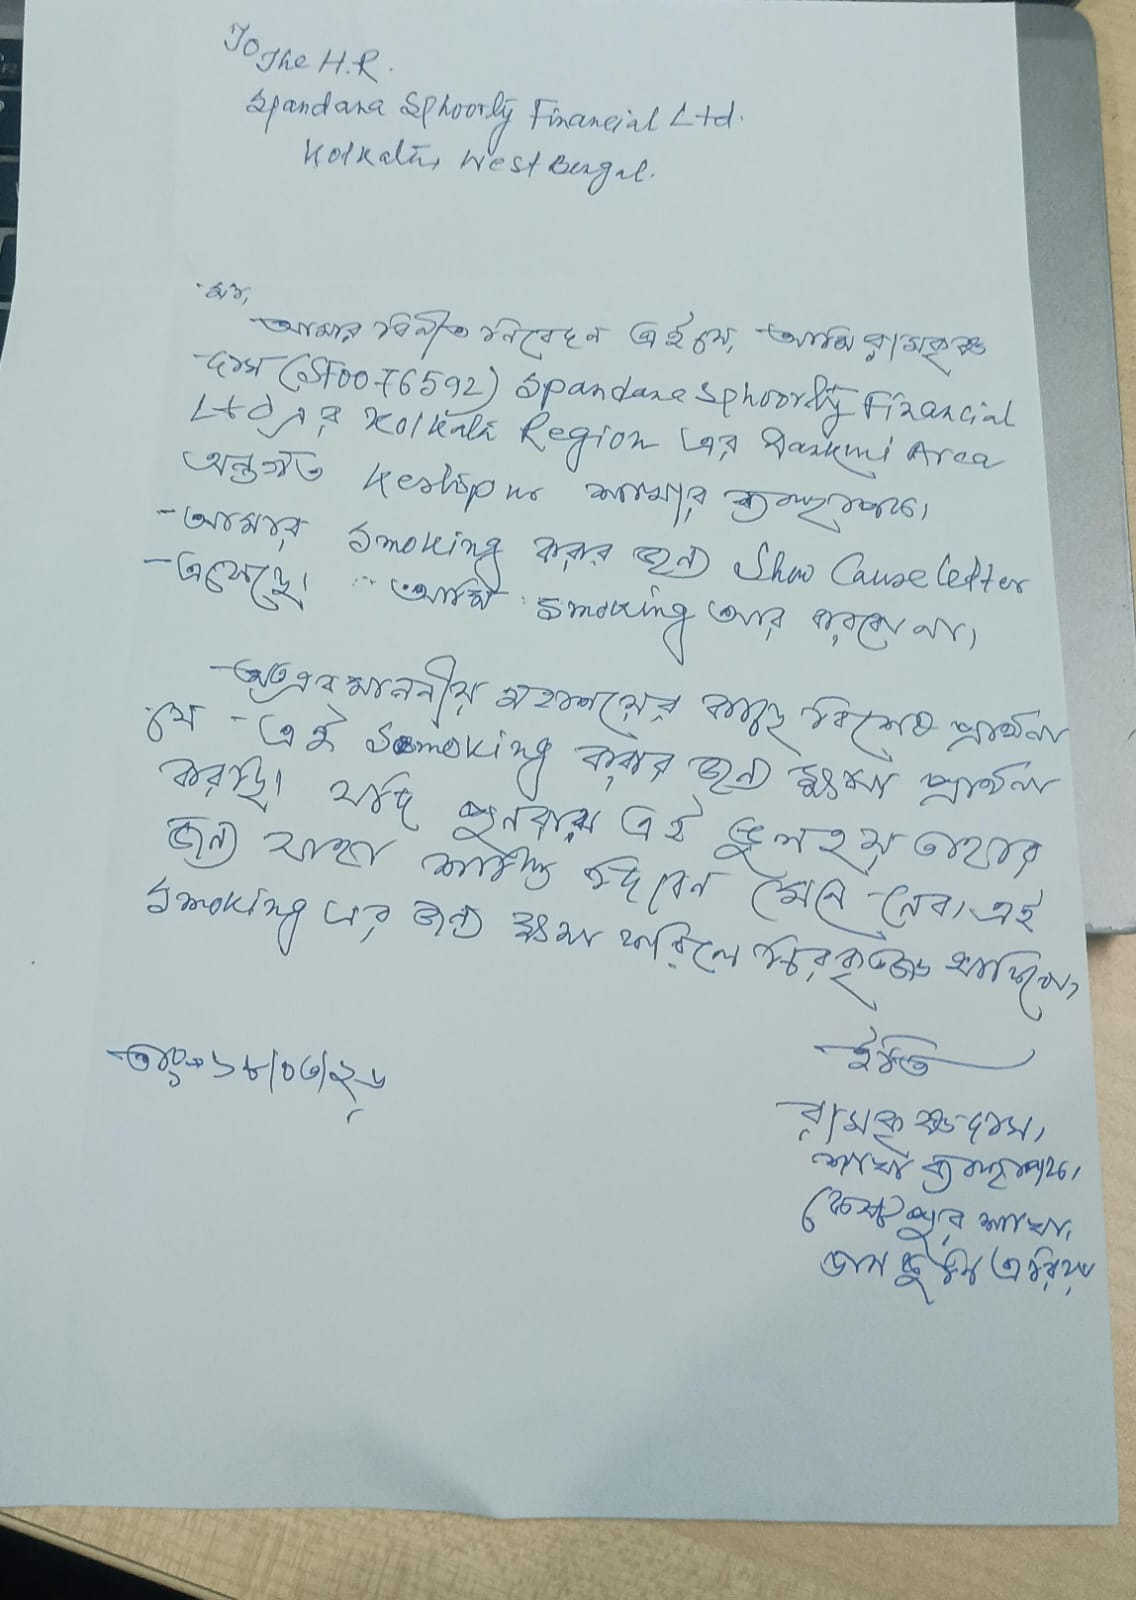 To The H.R.
Spandana Sphoorty Financial Ltd.
Kolkata, West Bengal.
আমার বিনীত নিবেদন এই যে, আমি রামকৃষ্ণ
দাস (SF0076592) Spandana Sphoorty Financial
Ltd এর Kolkata Region এর Dankuni Area
অন্তর্গত Keshpur শাখার
আমার Smoking করার জন্য Show Cause letter
এসেছে। আমি Smoking আর করবো না,
অতএব মাননীয় মহাশয়ের কাছে বিশেষ প্রার্থনা
যে এই Smoking করার জন্য ক্ষমা প্রার্থনা
করছি। যদি পুনরায় এই ভুল হয় তাহার
জন্য যাহা শাস্তি দিবেন মেনে নেব, এই
Smoking এর জন্য ক্ষমা করিলে চিরকৃতজ্ঞ থাকিব,
তাং- ১৮/০৩/২৬
ইতি
রামকৃষ্ণ দাস,
শাখা
শাখা,
এরিয়া